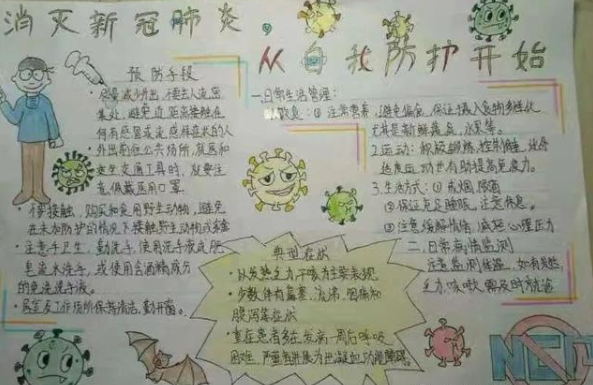 消灭新冠肺炎，
从自我防护开始
预防手段
·尽量减少外出，
集处，避免近距离接触任
何有感冒或流感样症状的人
·外出前往公共场所，就医和
乘坐交通工具时，
佩戴医用口罩。
·不要接触，购买和食用野生动物，避免
在未加防护的情况下接触野生动物
·注意手卫生，勤洗手，使用洗手液或肥
皂流水洗手，或使用含酒精成分
的免洗洗手液。
·居室及工作场所保持清洁，勤开窗。
一.日常生活管理：
1.饮食：① 注意营养，避免偏食，保证摄入食物多样化
尤其是新鲜蔬菜、水果等。
2.运动：
适度运动 有助提高免疫力。
3.生活方式：① 戒烟，限酒
② 保证充足睡眠，注意休息。
③ 注意缓解情绪，减轻心理压力
二、日常病情监测
注意监测体温，如有发热，
乏力，咳嗽，需及时就诊
典型症状
·以发热乏力干咳为主要表现
·少数伴有鼻塞，流涕，咽痛和
腹泻等症状
·重症患者多在发病一周后呼吸
困难，严重者
NCP